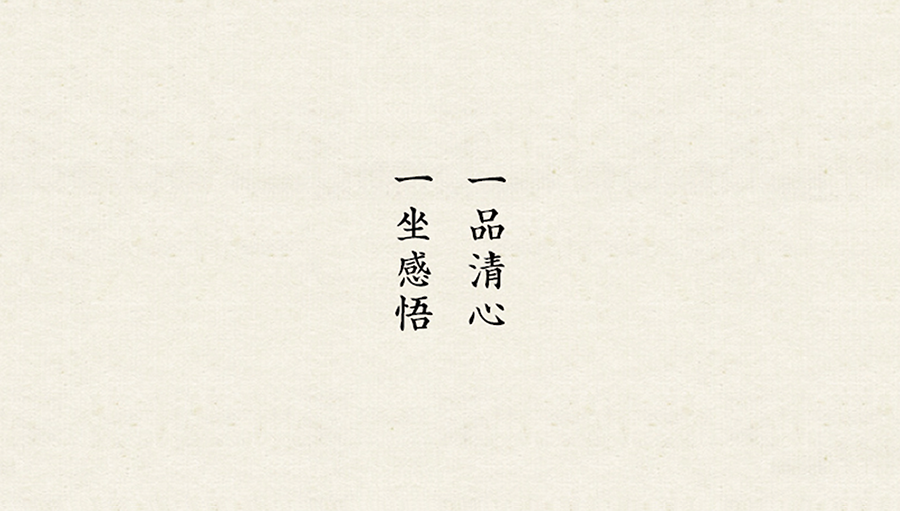 一品清心
一坐感悟